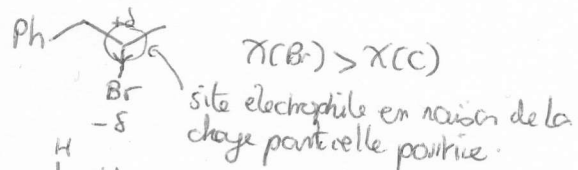 +δ
Ph
χ(Br) > χ(C)
Br
-δ
site electrophile en raison de la
charge partielle positive.
H